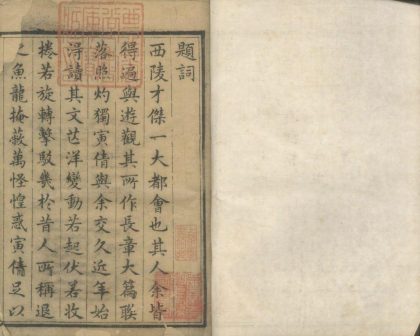 題詞
西陵才傑一大都會也其人余皆
得遍與遊觀其所作長章大篇聯
落照灼獨寅倩與余交久近年始
淂讀其文芒洋變動若起伏若收
捲若旋轉擊駁㡬於昔人所稱退
之魚龍掩蔽萬怪惶惑寅倩足以